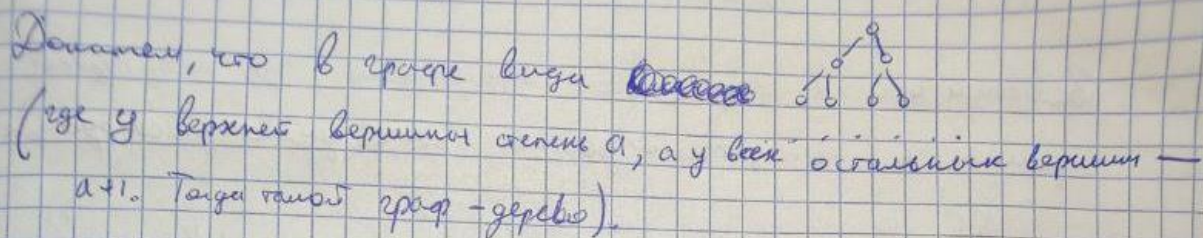 Докажем, что в графе вида
(где у верхней вершины степень a, а у всех остальных вершин —
a+1. Тогда такой граф - дерево).